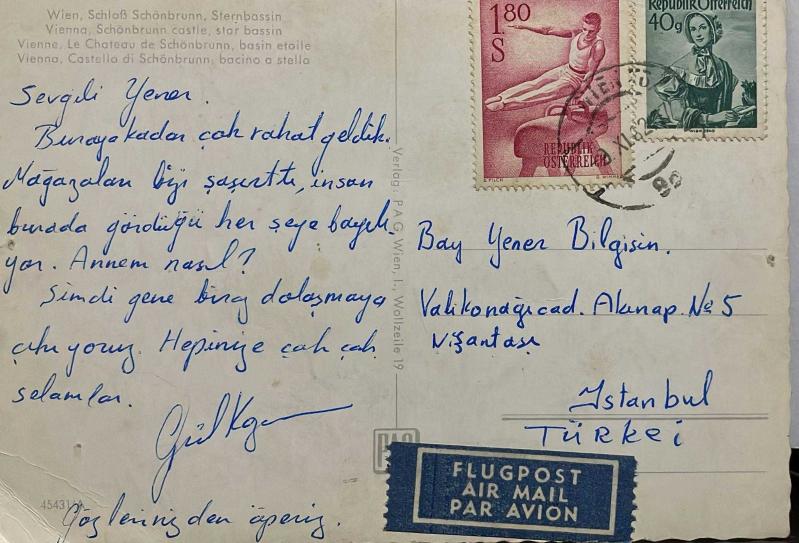 Wien, Schloß Schönbrunn, Sternbassin
Vienna, Schönbrunn castle, star bassin
Vienne, Le Chateau de Schönbrunn, basin etoile
Vienna, Castello di Schönbrunn, bacino a stella
Sevgili Yener.
Buraya kadar çok rahat geldik.
Mağazaları bizi şaşırttı, insan
burada gördüğü her şeye bayılı-
yor. Annem nasıl?
Şimdi gene biraz dolaşmaya
çıkıyoruz. Hepinize çok çok
selamlar.
Gözlerinizden öperiz.
454311A
Verlag: PAG, Wien, I., Wollzeile 19
PAG
1.80
S
REPUBLIK
ÖSTERREICH
Republik Österreich
40g
Bay Yener Bilgisin.
Valikonağı cad. Akınap. No 5
Nişantaşı
Istanbul
TÜRKEI
FLUGPOST
AIR MAIL
PAR AVION